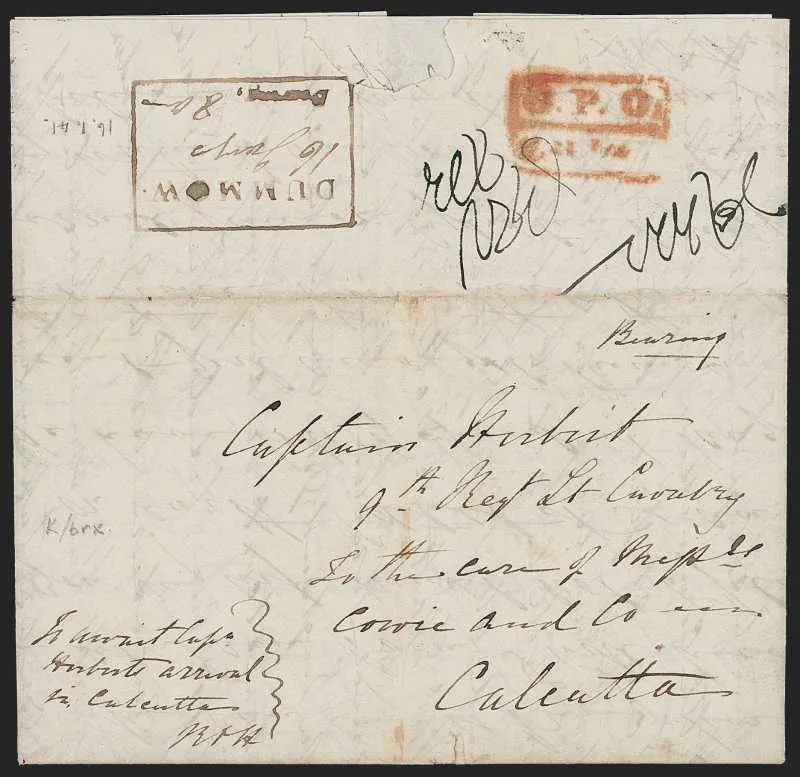 DUMMOW.
16
16.1.41.
G. P. O.
Bearing
Captain Herbert
9th Regt Lt Cavalry
To the care of Messrs
Cowie and Co
Calcutta
To await Capn
Herberts arrival
in Calcutta